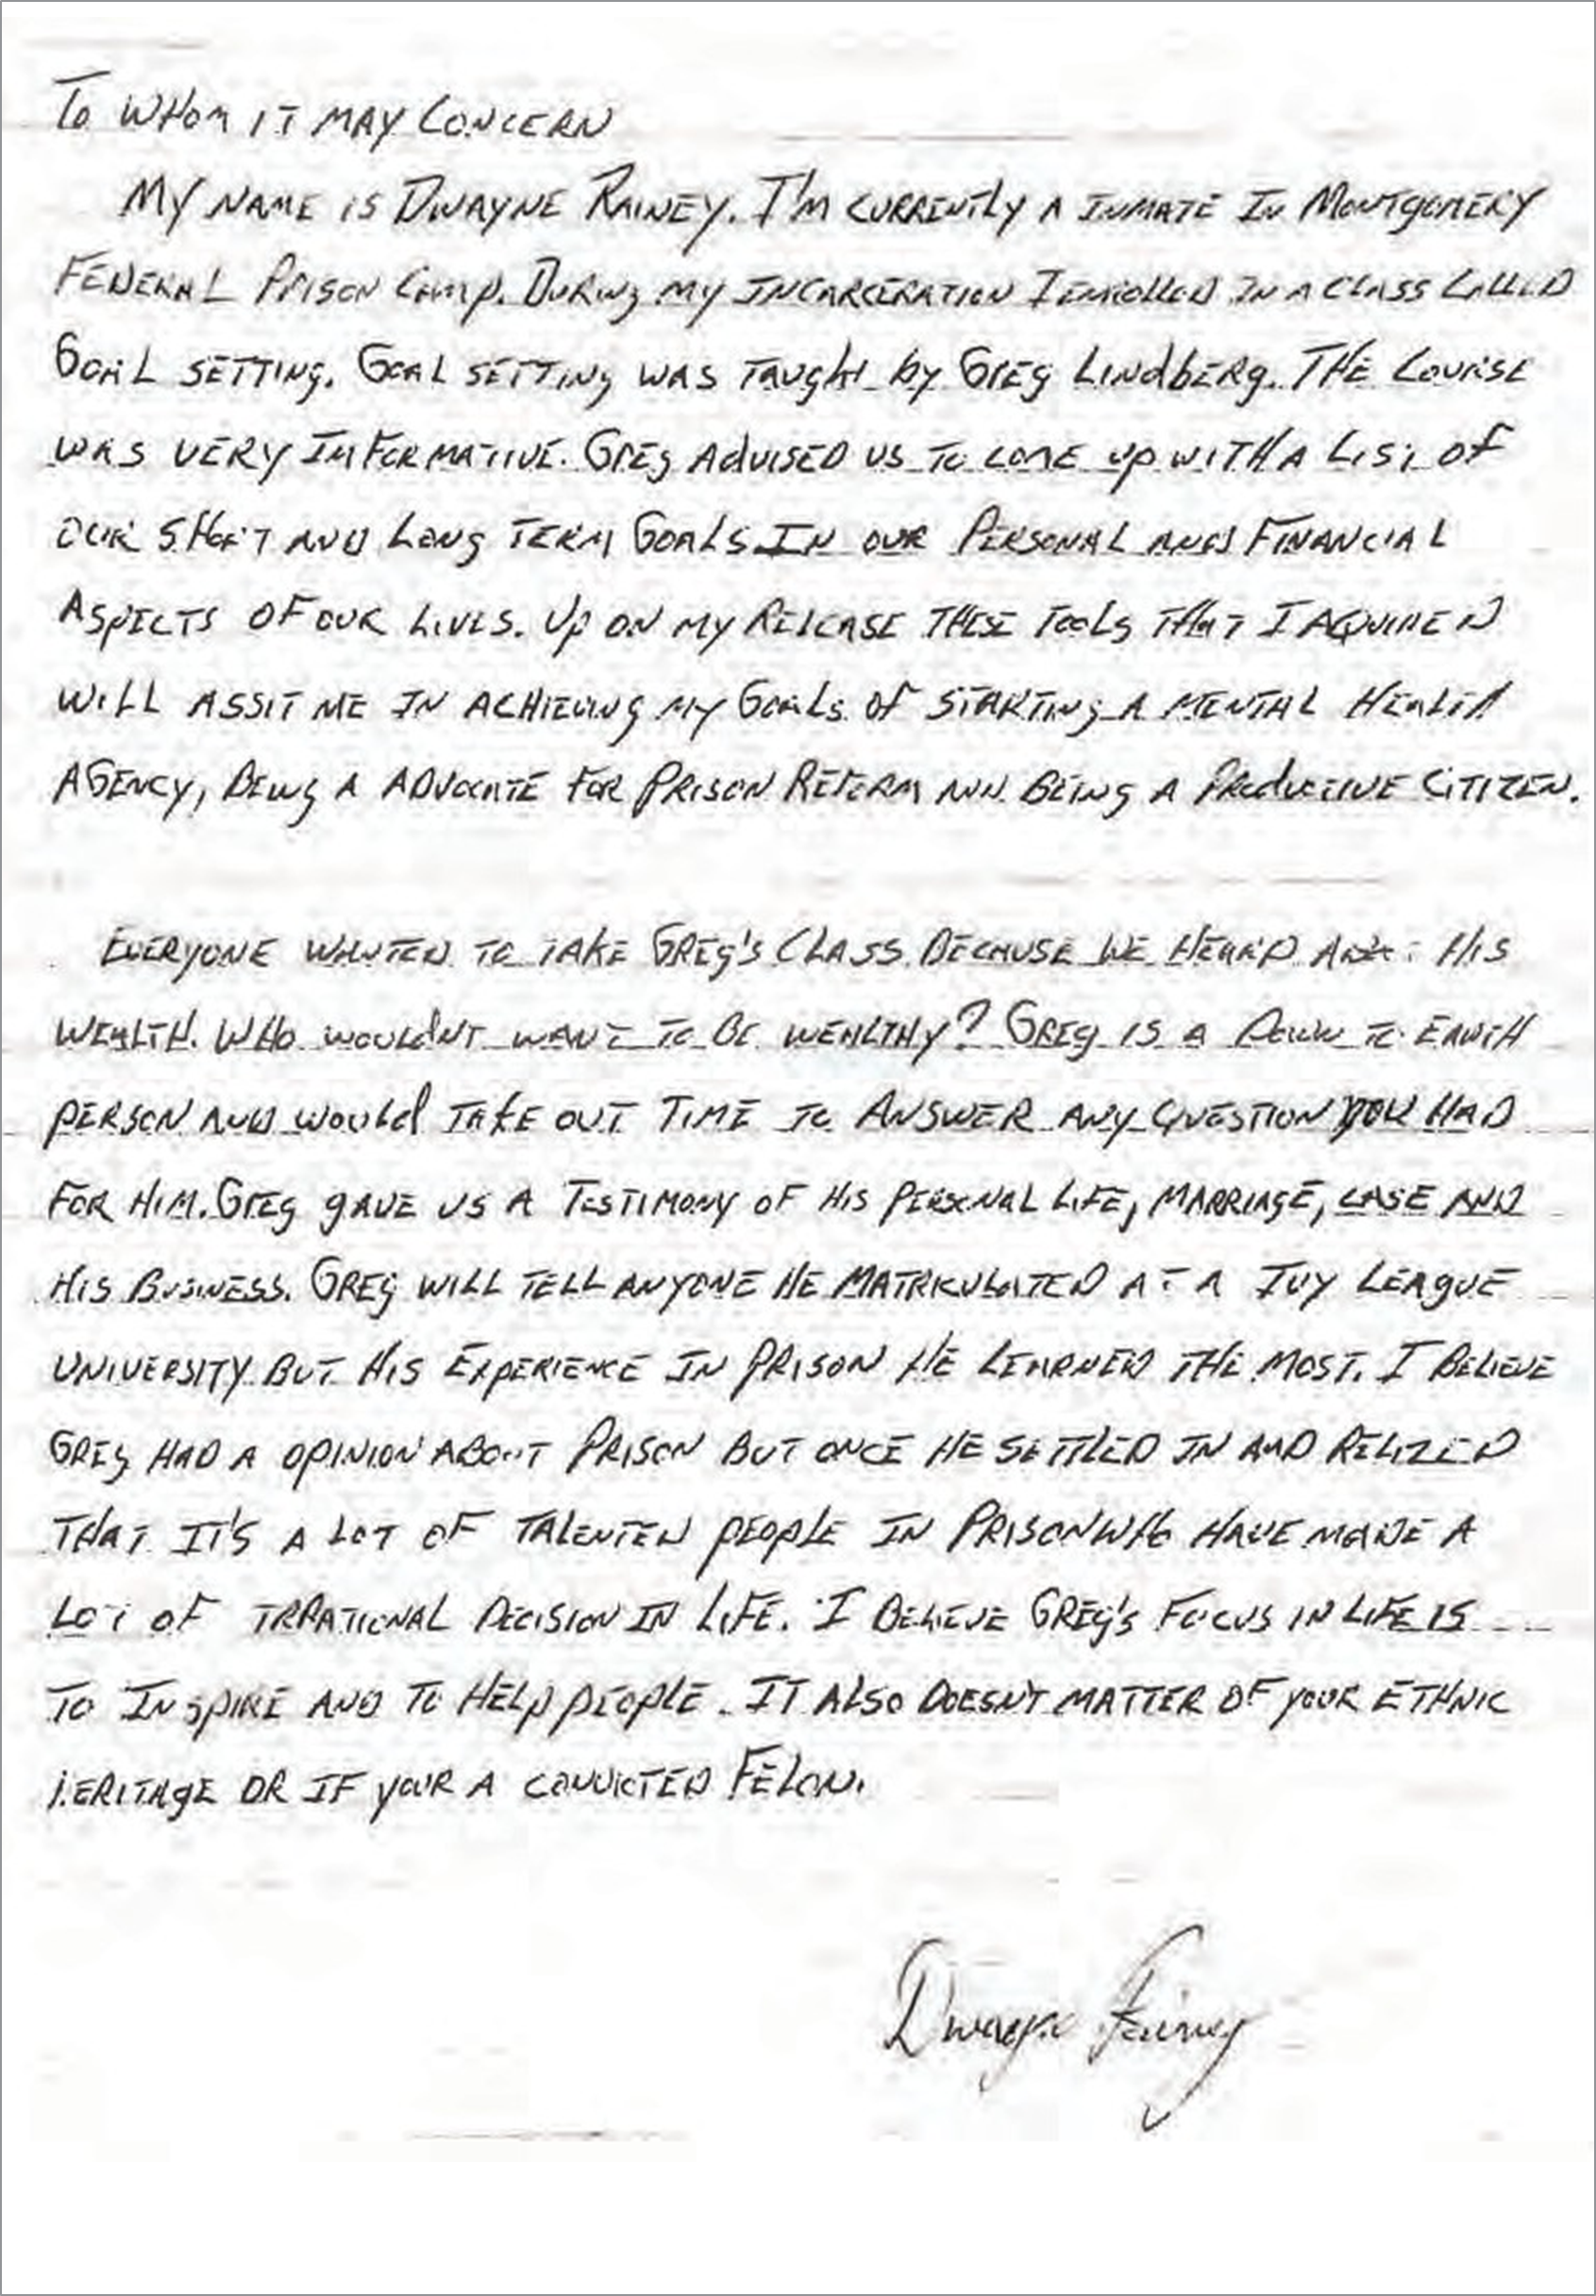 To Whom it may Concern
My name is Dwayne Rainey. I'm currently a inmate in Montgomery
Federal Prison Camp. During my incarceration I enrolled in a class called
Goal setting. Goal setting was taught by Greg Lindberg. The course
was very informative. Greg advised us to come up with a list of
our short and long term Goals in our Personal and Financial
Aspects of our lives. Up on my release these tools that I aquired
will assit me in achieving my Goals of starting a mental health
agency, being a advocate for Prison Reform and being a productive citizen.
Everyone wanted to take Greg's class because we heard his
wealth. Who wouldnt want to be wealthy? Greg is a down to earth
person and would take out time to answer any question you had
for him. Greg gave us a testimony of his personal life, marriage, case and
his business. Greg will tell anyone he matriculated at a Ivy League
university but his experience in prison he learned the most. I believe
Greg had a opinion about prison but once he settled in and relized
that it's a lot of talented people in prison who have made a
lot of irrational decision in life. I believe Greg's focus in life is
to inspire and to help people. It also doesn't matter of your ethnic
heritage or if your a convicted felon.
Dwayne Rainey